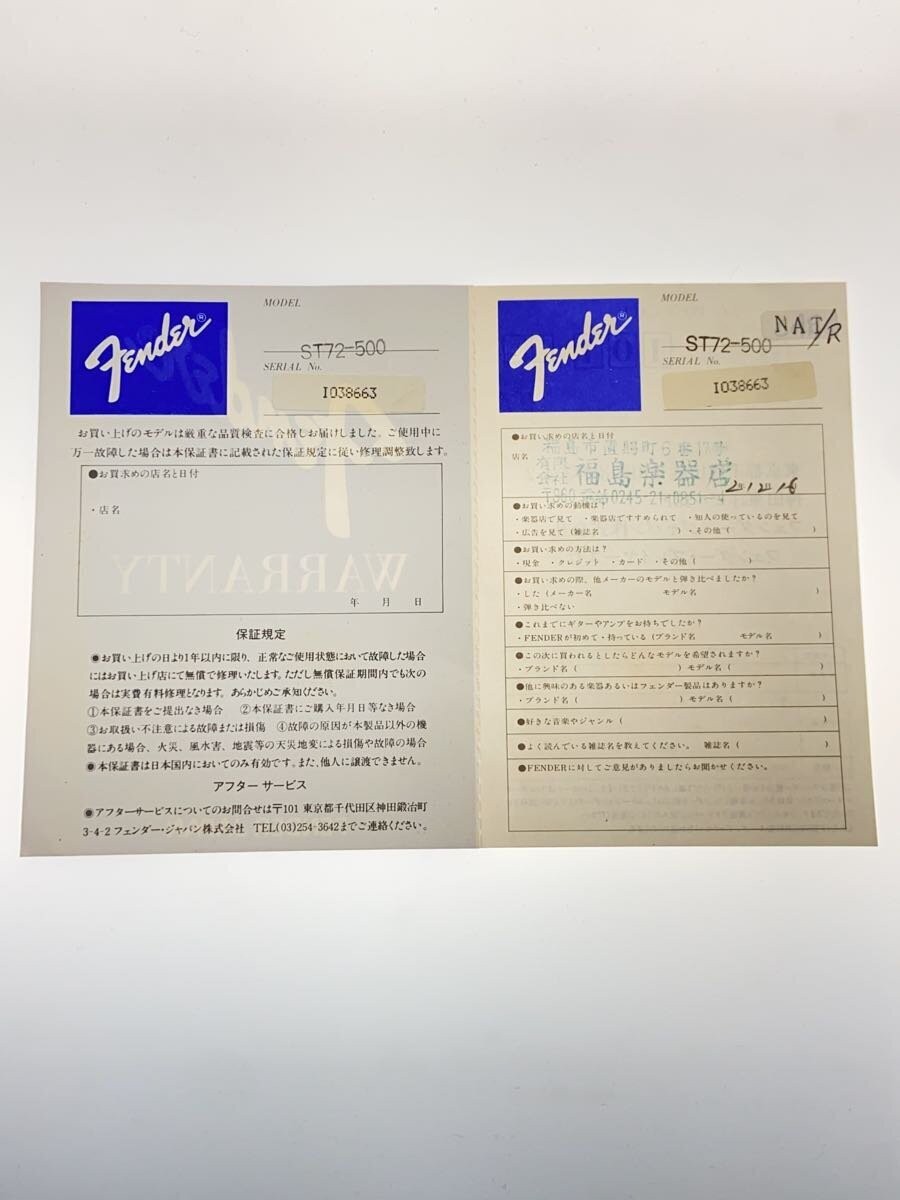 Fender®
MODEL
ST72-500
SERIAL No.
I038663
お買い上げのモデルは厳重な品質検査に合格しお届けしました。ご使用中に
万一故障した場合は本保証書に記載された保証規定に従い修理調整致します。
●お買求めの店名と日付
・店名
年 月 日
WARRANTY
保証規定
●お買い上げの日より1年以内に限り、正常なご使用状態において故障した場合
にはお買い上げ店にて無償で修理いたします。ただし無償保証期間内でも次の
場合は実費有料修理となります。あらかじめご承知ください。
①本保証書をご提出なき場合 ②本保証書にご購入年月日等なき場合
③お取扱い不注意による故障または損傷 ④故障の原因が本製品以外の機
器にある場合、火災、風水害、地震等の天災地変による損傷や故障の場合
●本保証書は日本国内においてのみ有効です。また、他人に譲渡できません。
アフター サービス
●アフターサービスについてのお問合せは〒101 東京都千代田区神田鍛冶町
3-4-2 フェンダー・ジャパン株式会社 TEL(03)254-3642までご連絡ください。
Fender®
MODEL
NAT/R
ST72-500
SERIAL No.
I038663
●お買い求めの店名と日付
店名
有限会社 福島楽器店
2.12.16
●お買い求めの動機は?
・楽器店で見て ・楽器店ですすめられて ・知人の使っているのを見て
・広告を見て(雑誌名 ) ・その他( )
●お買い求めの方法は?
・現金 ・クレジット ・カード ・その他( )
●お買い求めの際、他メーカーのモデルと弾き比べましたか?
・した(メーカー名 モデル名 )
・弾き比べない
●これまでにギターやアンプをお持ちでしたか?
・FENDERが初めて・持っている(ブランド名 モデル名 )
●この次に買われるとしたらどんなモデルを希望されますか?
・ブランド名( ) モデル名( )
●他に興味のある楽器あるいはフェンダー製品はありますか?
・ブランド名( ) モデル名( )
●好きな音楽やジャンル( )
●よく読んでいる雑誌名を教えてください。 雑誌名( )
●FENDERに対してご意見がありましたらお聞かせください。